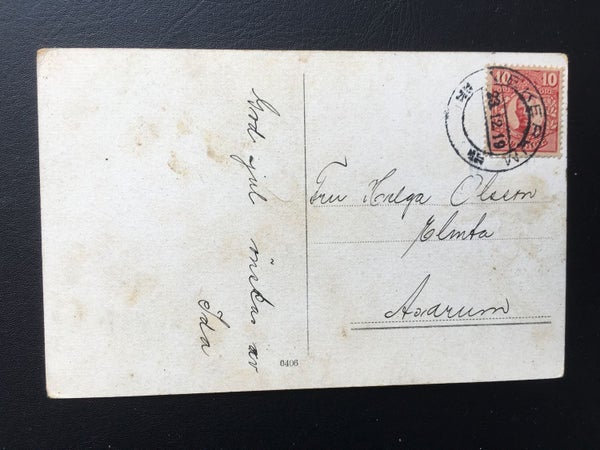 God jul önskas av
Ida
Fru Helga Olsson
Elmta
Asarum
6406
10 10
23.12.19